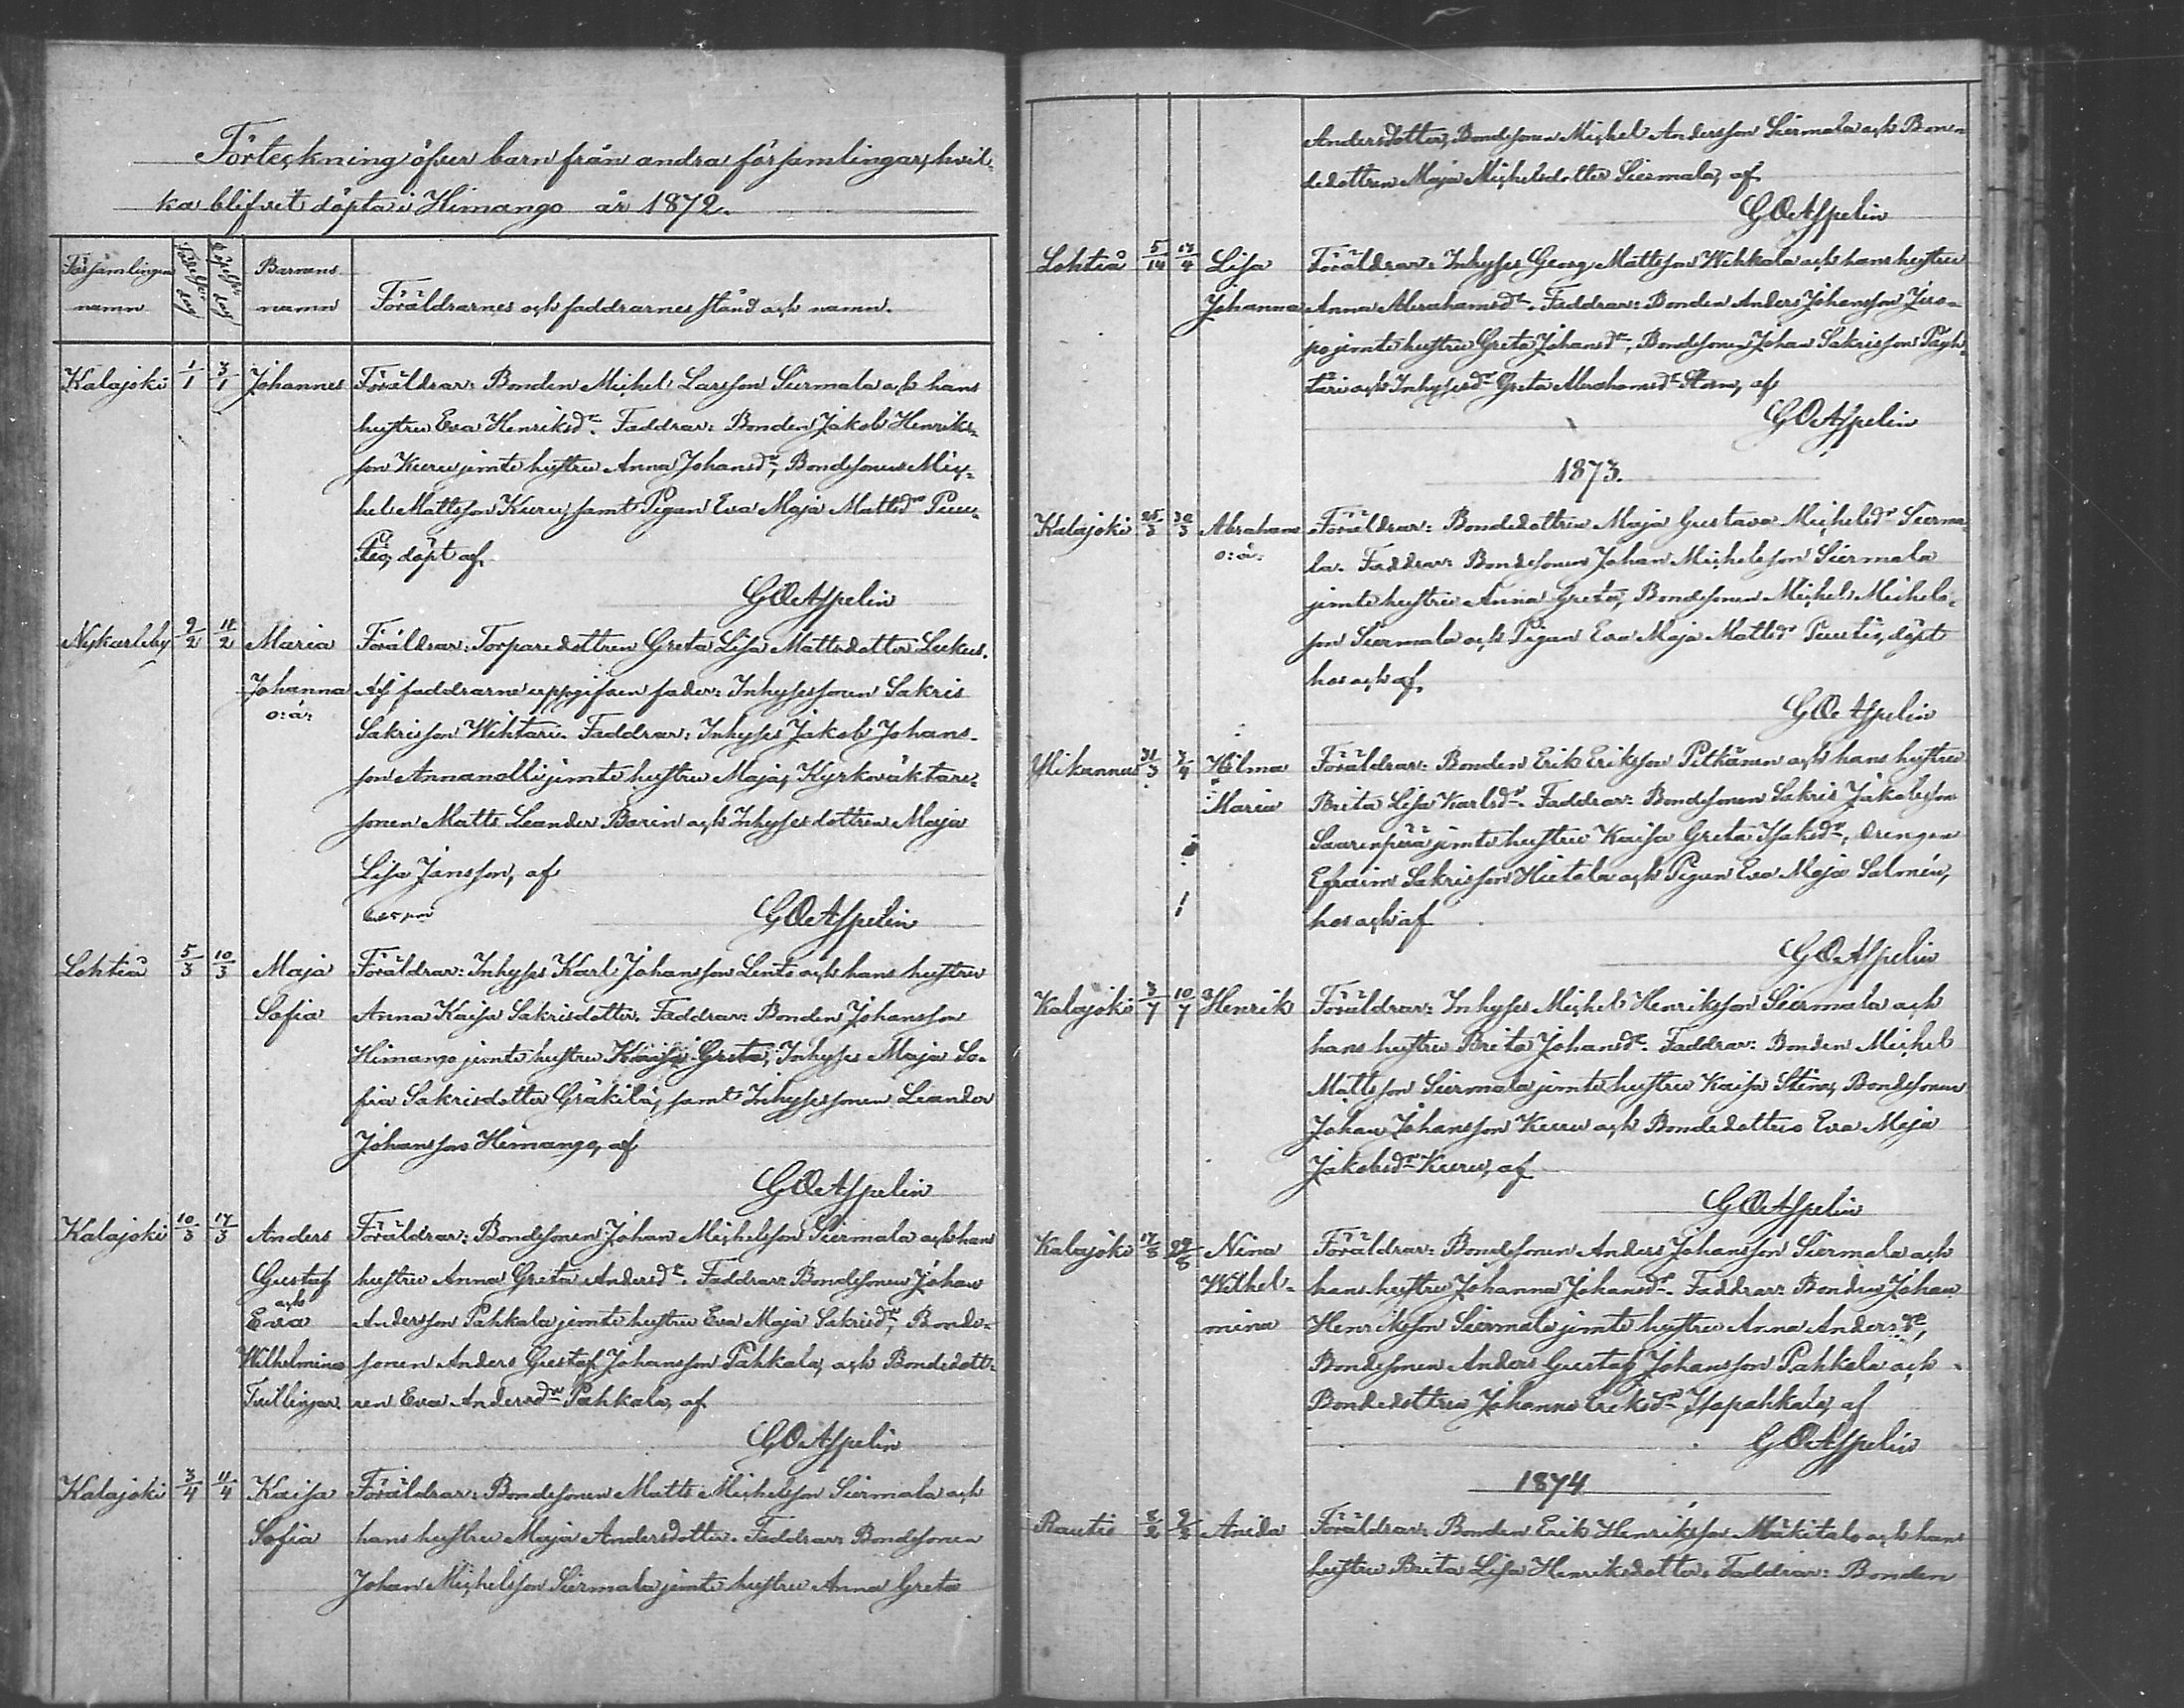 Förteckning öfver barn från andra församlingar, hvil-
ka blifvit döpta i Himango år 1872.
Församlingens namn
Födelse dag
Döpelse dag
Barnens namn
Föräldrarnes och faddrarnes stånd och namn.
Kalajoki 1/1 3/1 Johannes Föräldrar: Bonden Michel Larsson Siermala och hans
hustru Eva Henriksdr. Faddrar: Bonden Jakob Henriks-
son Kuru jemte hustru Anna Johansdr, Bondesonen Mic-
hel Mattsson Kuru samt Pigan Eva Maja Mattsdr Puu-
tio, döpt af
G O Aspelin
Nykarleby 9/2 18/2 Maria Föräldrar: Torparedottren Greta Lisa Mattsdotter
Johanna Af faddrarne uppgifven fader: Inhysessonen Sakris
o: ä:
Sakrisson Wihtari. Faddrar: Inhyses Jakob Johans-
son Annanolli jemte hustru Maja, Kyrkoväktare-
sonen Matts Leander Barin och Inhysesdottren Maja
Lisa Jansson, af
G O Aspelin
Lohteå 5/3 10/3 Maja Föräldrar: Inhyses Karl Johansson Lento och hans hustru
Sofia Anna Kaisa Sakrisdotter. Faddrar: Bonden Johansson
Himango jemte hustru Kaisa Greta, Inhyses Maja So-
fia Sakrisdotter Gräkilä, samt Inhysessonen Leander
Johansson Himango, af
G O Aspelin
Kalajoki 10/3 17/3 Anders Föräldrar: Bondesonen Johan Michelsson Siermala och hans
Gustaf hustru Anna Greta Andersdr. Faddrar: Bondesonen Johan
och
Eva Andersson Pahkala jemte hustru Eva Maja Sakrisdr, Bonde-
Wilhelmina sonen Anders Gustaf Johansson Pahkala, och Bondedott-
Tvillingar. ren Eva Andersdr Pahkala, af
G O Aspelin
Kalajoki 3/4 11/4 Kaisa Föräldrar: Bondesonen Matts Michelsson Siermala och
Sofia hans hustru Maja Andersdotter. Faddrar: Bondesonen
Johan Michelsson Siermala jemte hustru Anna Greta
Andersdotter, Bondesonen Michel Andersson Siermala och Bon-
dedottren Maja Michelsdotter Siermala, af
G O Aspelin
Lohteå 5/14 13/4 Lisa Föräldrar: Inhyses Georg Mattsson Wihkala och hans hustru
Johanna Anna Abrahamsdr. Faddrar: Bonden Anders Johansson Juo-
po jemte hustru Greta Johansdr, Bondesonen Johan Sakrisson Pöyh-
täri och Inhysesdr Greta Abrahamsdr af
G O Aspelin
1873.
Kalajoki 25/3 30/3 Abraham Föräldrar: Bondedottren Maja Gustava Michelsdr Sierma-
o: ä:
la. Faddrar: Bondesonen Johan Michelsson Siermala
jemte hustru Anna Greta, Bondesonen Michel Michels-
son Siermala och Pigan Eva Maja Mattsdr Puutio, döpt
hos och af
G O Aspelin
Ylikannus 31/3 3/4 Hilma Föräldrar: Bonden Erik Eriksson Pitkänen och hans hustru
Maria Brita Lisa Karlsdr. Faddrar: Bondesonen Sakris Jakobsson
Saarenpää jemte hustru Kaisa Greta Isaksdr, Drengen
Efraim Sakrisson Hietala och Pigan Eva Maja Salmén,
hos och af
G O Aspelin
Kalajoki 3/7 10/7 Henrik Föräldrar: Inhyses Michel Henriksson Siermala och
hans hustru Brita Johansdr. Faddrar: Bonden Michel
Mattsson Siermala jemte hustru Kaisa Stina, Bondesonen
Johan Johansson Kuru och Bondedottren Eva Maja
Jakobsdr Kuru, af
G O Aspelin
Kalajoki 17/8 24/8 Nina Föräldrar: Bondesonen Anders Johansson Siermala och
Wilhel- hans hustru Johanna Johansdr. Faddrar: Bonden Johan
mina Henriksson Siermala jemte hustru Anna Andersdr,
Bondesonen Anders Gustaf Johansson Pahkala och
Bondedottren Johanna Eriksdr Isopahkala, af
G O Aspelin
1874
Rautio Anida Föräldrar: Bonden Erik Henriksson Mäkitalo och hans
hustru Brita Lisa Henriksdotter. Faddrar: Bonden